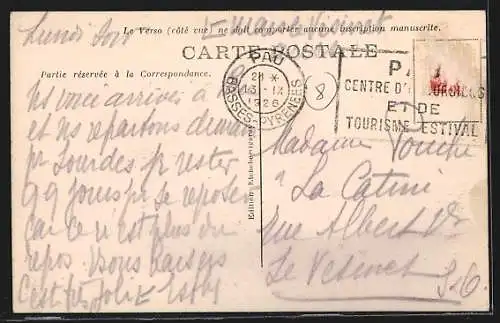 Le Verso (côté vue) ne doit comporter aucune inscription manuscrite.
Lundi soir
CARTE POSTALE
Partie réservée à la Correspondance.
PAU
21 *
13 - IX
1926
BASSES-PYRENEES
8
CENTRE D'
ET DE
TOURISME ESTIVAL
Ns voici arrivés à
et ns repartons demain
pr Lourdes pr rester
qq jours pr se reposer
car ce n'est plus du
repos Bons baisers
C'est très joli
Madame
à
La
rue Albert 1er
Le Vésinet
S-O